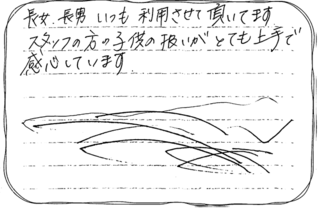 長女、長男 いつも 利用させて 頂いてます
スタッフの方の子供の扱いが とても上手で
感心しています